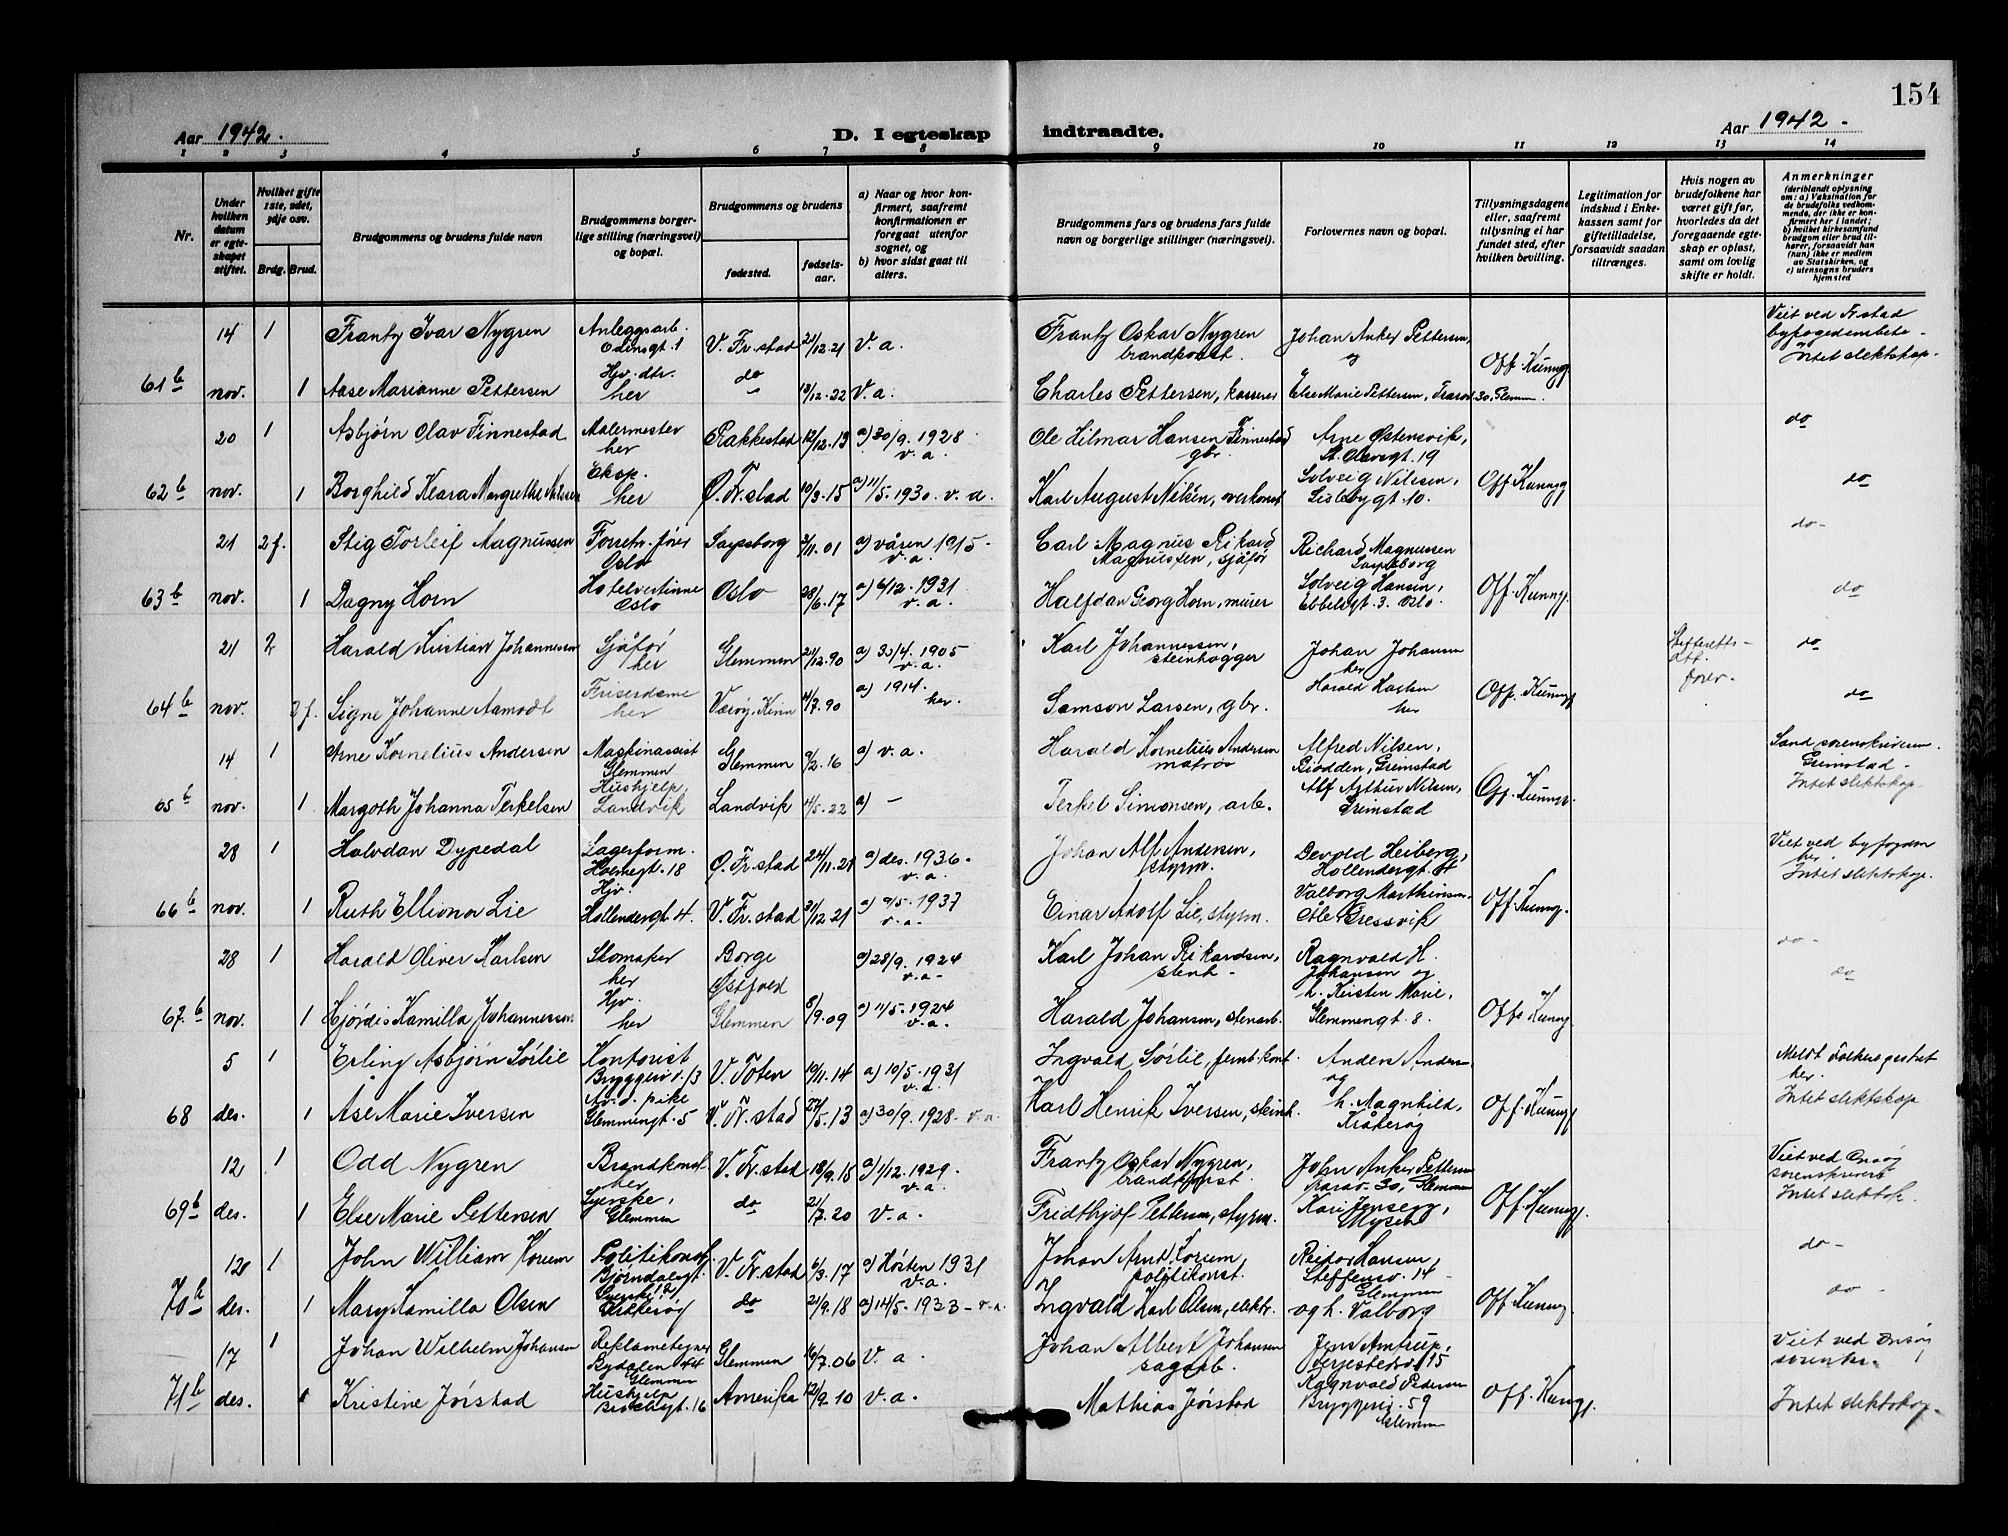 154
Aar 1942.
D. I egteskap indtraadte.
Aar 1942.
1 2 3 4 5 6 7 8 9 10 11 12 13 14
Nr.
Under hvilken datum er egteskapet stiftet.
Hvilket gifte 1ste, 2det, 3dje osv.
Brdg. Brud.
Brudgommens og brudens fulde navn
Brudgommens borgerlige stilling (næringsvei) og bopæl.
Brudgommens og brudens
fødested.
fødselsaar.
a) Naar og hvor konfirmert, saafremt konfirmationen er foregaat utenfor sognet, og
b) hvor sidst gaat til alters.
Brudgommens fars og brudens fars fulde navn og borgerlige stillinger (næringsvei).
Forlovernes navn og bopæl.
Tillysningsdagene eller, saafremt tillysning ei har fundet sted, efter hvilken bevilling.
Legitimation for indskud i Enkekassen samt for giftetilladelse, forsaavidt saadan tiltrænges.
Hvis nogen av brudefolkene har været gift før, hvorledes da det foregaaende egteskap er opløst, samt om lovlig skifte er holdt.
Anmerkninger
(deriblandt oplysning om: a) Vaksination for de brudefolks vedkommende, der ikke er konfirmert her i landet; b) hvilket kirkesamfund brudgom eller brud tilhører, forsaavidt han (hun) ikke er medlem av Statskirken, og c) utensogns bruders hjemsted
14 1 Frantz Ivar Nygren Anleggsarb. Odinsgt. 1 V. Fr.stad 21/12.21 V. a. Frantz Oskar Nygren brandkonst. Johan Anker Pettersen, og Viet ved F.stad byfogedembete. Intet slektskap.
61 b nov. 1 Aase Marianne Pettersen Hjv. dtr. her do 13/12.22 V. a. Charles Pettersen, kasserer Else Marie Pettersen, 30, Glemm. Off. Kunng.
20 1 Asbjørn Olav Finnestad Malermester her Rakkestad 12/12.13 a) 30/9. 1928 v. a. Ole Hilmar Hansen Finnestad gbr. Arne Østensvik, St. Olavsgt. 19 do
62 b nov. 1 Borghild Klara Margrethe Nilsen Eksp. her Ø. Fr.stad 10/3.15 a) 11/5. 1930. v. a. Karl August Nilsen, overkonst. Solveig Nilsen, Lislebygt. 10. Off. Kunng. do
21 2 f. Stig Torleif Magnussen Forretn. fører Oslo Sarpsborg 3/11.01 a) våren 1915 v. a. Carl Magnus Rikard Magnussen, sjåfør Richard Magnussen Sarpsborg do
63 b nov. 1 Dagny Horn Hotelvertinne Oslo Oslo 28/6.17 a) 6/12. 1931 v. a. Halfdan Georg Horn, murer Solveig Hansen, Ebbelsgt. 3. Oslo. Off. Kunng. do
21 2 Harald Kristian Johannessen Sjåfør her Glemmen 21/12.90 a) 30/4. 1905 v. a. Karl Johannessen, steinhogger Johan Johansen her Skifteretts-att. fører. do
64 b nov. 2 f. Signe Johanne Aamodt Friserdame her Værøy, Kinn 4/7.90 a) 1914. her. Samson Larsen, gbr. Harald her Off. Kunng. do
14 1 Arne Kornelius Andersen Maskinassist Glemmen Glemmen 9/2.16 a) v. a. Harald Kornelius Andersen matros Alfred Nilsen, Biodden, Grimstad Sand sorenskriveri. Grimstad. Intet slektskap
65 b nov. 1 Margoth Johanna Terkelsen Hushjelp, Landvik Landvik 4/5.22 a) — Terkel Simonsen, arb. Alf Arthur Nilsen, Grimstad Off. Kunng.
28 1 Halvdan Dypedal Lagerform. 18 Ø. Fr.stad 24/11.21 a) des. 1936. v. a. Johan Alf Andersen, styrm. Devold Heiberg, Hollendergt. Viet ved byfogden her. Intet slektskap.
66 b nov. 1 Ruth Ellionor Lie Hjv. Hollendergt. 4. V. Fr.stad 31/12.21 a) 9/5. 1937 v. a. Einar Adolf Lie, styrm. Valborg Marthinsen, Gressvik Off. Kunng.
28 1 Harald Oliver Karlsen Skomaker her Borge Østfold a) 28/9. 1924 v. a. Karl Johan Rikardsen, stenh. Ragnvald H. Johansen og do
67. b nov. 1 Hjørdis Kamilla Johannessen Hjv. her Glemmen 8/9.09 a) 11/5. 1924 v. a. Harald Johansen, stenarb. h. Kristen Marie, Glemmengt. 8. Off. Kunng. do
5 1 Erling Asbjørn Sørlie Kontorist Bryggeriv. 13 V. Toten 10/11.14 a) 10/5. 1931 v. a. Ingvald Sørlie, jernb.kont. Anders Andersen og Meldt Folkeregistret her. Intet slektskap
68 des. 1 Ase Marie Iversen Glemmengt. 5 V. Fr.stad 27/5.13 a) 30/9. 1928 - v. a. Karl Henrik Iversen, steinh. h. Magnhild, Kråkerøy Off. Kunng.
12 1 Odd Nygren Brandkonst. her V. Fr.stad 18/9.15 a) 1/12. 1929. v. a. Frantz Oskar Nygren, brandkonst. John Anker Pettersen 30, Glemmen Viet ved Onsøy sorenskriveri Intet slektsk.
69 b des. 1 Else Marie Pettersen Syerske, Glemmen do 21/7.20 V. a. Fridthjof Pettersen, styrm. Kari Jensen, Mysen Off. Kunng.
12 1 John William Korum Politikonst. Bjørndalsgt. 12 V. Fr.stad 6/3.17 a) Høsten 1931 v. a. Johan Arnt Korum, politikonst. Reidar Hansen, Steffensv. 14 Glemmen do
70 b des. 1 Mary Kamilla Olsen Syerske Kråkerøy do 21/9.18 a) 14/5. 1933 - v. a. Ingvald Karl Olsen, elektr. og h. Valborg Off. Kunng. do
17 1 Johan Wilhelm Johansen Reklametegner Glemmen Glemmen 16/7.06 V. a. Johan Albert Johansen sagarb. Jens Amtrup, 15 Viet ved Onsøy sorenskr.
71 b des. 1 Kristine Jørstad Hushjelp 16 Amerika 12/9.10 V. a. Mathias Jørstad Ragnvald Pedersen Bryggeriv. 59 Glemmen Off. Kunng. Intet slektskap.